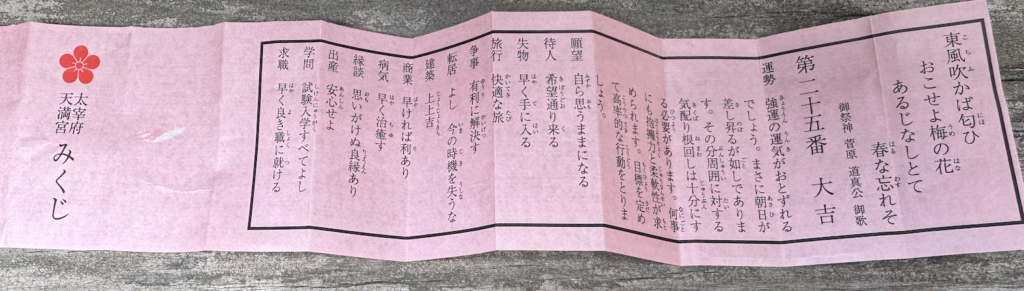 東風吹かば匂ひ
おこせよ梅の花
あるじなしとて
春な忘れそ
御祭神 菅原 道真公 御歌
第二十五番 大吉
運勢 強運の運気がおとずれる
でしょう。まさに朝日が
差し昇るが如しでありま
す。その分周囲に対する
気配り根回しは十分にす
る必要があります。何事
にも抱擁力と柔軟性が求
められます。目標を定め
て高率的な行動をとりま
しょう。
願望 自ら思うままになる
待人 希望通り来る
失物 早く手に入る
旅行 快適な旅
争事 有利に解決す
転居 よし 今の時機を失うな
建築 上上吉
商業 早ければ利あり
病気 早く治癒す
縁談 思いがけぬ良縁あり
出産 安心せよ
学問 試験入学すべてよし
求職 早く良き職に就ける
太宰府
天満宮 みくじ